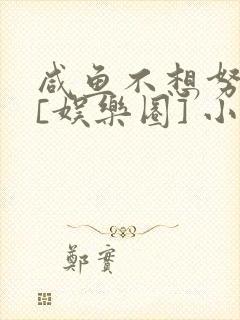 咸鱼不想努
[娱樂圈] 小
鄭實